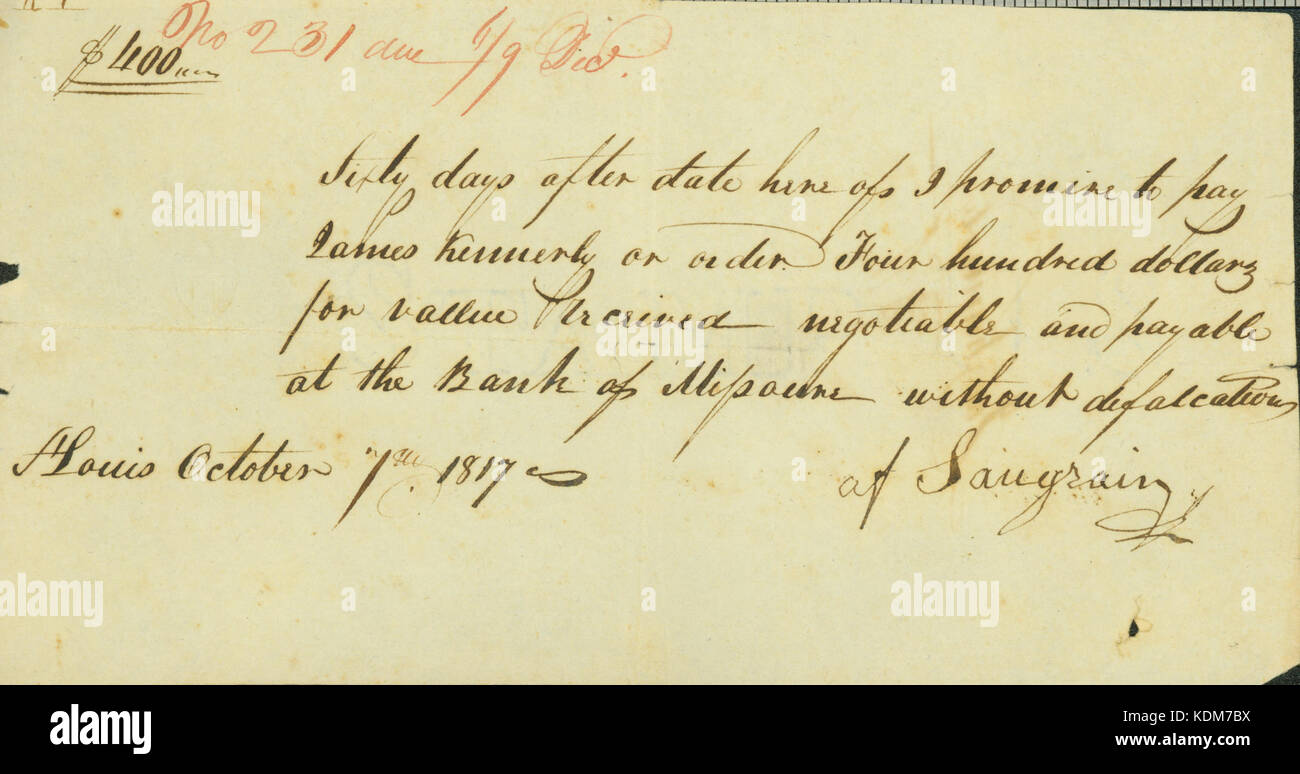 No 231 due 6/9 Decr.
$400
Sixty days after date here of I promise to pay
James Kennerly or order Four hundred dollars
for vallue Received negotiable and payable
at the Bank of Missoure without defalcation
St Louis October 7th 1817
af Saugrain
alamy
Image ID: KDM7BX
www.alamy.com